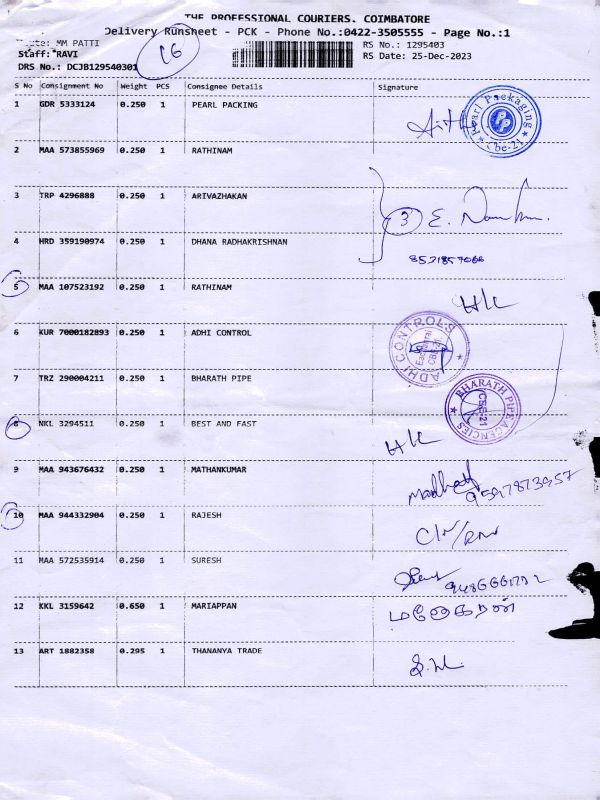 THE PROFESSIONAL COURIERS. COIMBATORE
Delivery Runsheet - PCK - Phone No.:0422-3505555 - Page No.:1
MM PATTI
RS No.: 1295403
Staff: RAVI
16
RS Date: 25-Dec-2023
DRS No.: DCJB129540301
S No Consignment No Weight PCS Consignee Details Signature
1 GDR 5333124 0.250 1 PEARL PACKING
Pearl Packaging
PP
Cbe-21
2 MAA 573855969 0.250 1 RATHINAM
3 TRP 4296888 0.250 1 ARIVAZHAKAN
3
4 HRD 359190974 0.250 1 DHANA RADHAKRISHNAN
5 MAA 107523192 0.250 1 RATHINAM
6 KUR 7000182893 0.250 1 ADHI CONTROL
ADHI CONTROLS
7 TRZ 290004211 0.250 1 BHARATH PIPE
BHARATH PIPE AGENCIES
CBE-21
8 NKL 3294511 0.250 1 BEST AND FAST
9 MAA 943676432 0.250 1 MATHANKUMAR
10 MAA 944332904 0.250 1 RAJESH
11 MAA 572535914 0.250 1 SURESH
12 KKL 3159642 0.650 1 MARIAPPAN
13 ART 1882358 0.295 1 THANANYA TRADE